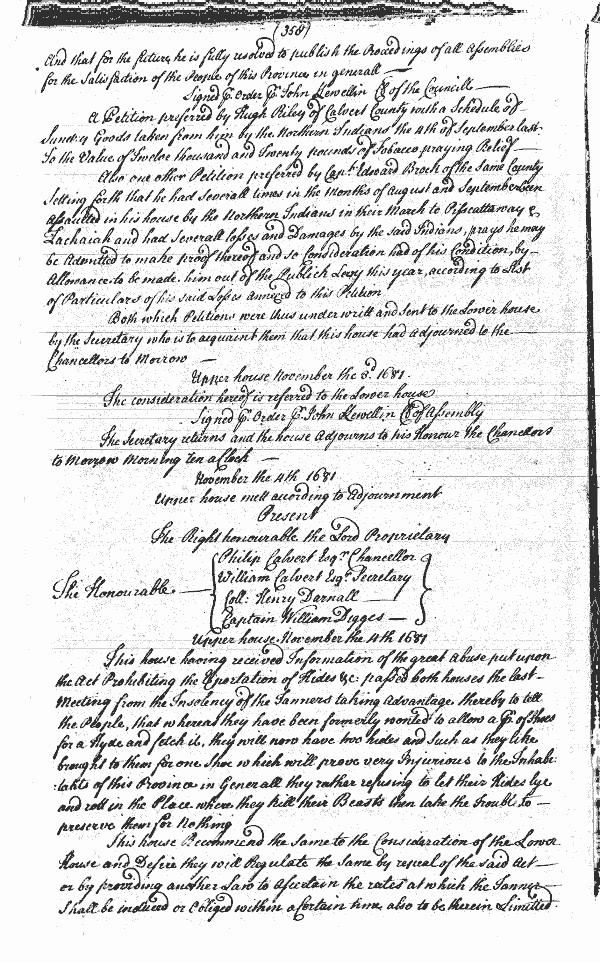 (358)
And that for the future he is fully resolved to publish the Proceedings of all Assemblies
for the Satisfaction of the People of this Province in generall —
Signed p. Order p. John Llewellin Clk of the Councill —
A Petition preferred by Hugh Riley of Calvert County with a Schedule of
Sundry Goods taken from him by the Northern Indians the 4th of September last
To the Value of Twelve thousand and Twenty pounds of Tobacco praying Relief —
Also one other Petition preferred by Capt. Edward Brock of the Same County
Setting forth that he had Severall times in the Months of August and September been
assaulted in his house by the Northern Indians in their March to Piscattaway &
Zachaiah and had Severall losses and Damages by the said Indians, prays he may
be Admitted to make proof thereof and so Consideration had of his Condition, by —
Allowance to be made him out of the Publick Levy this year, according to List
of Particulars of his said Losses annexed to this Petition
Both which Petitions were thus underwritt and sent to the Lower house
by the Secretary who is to acquaint them that this house had Adjourned to the —
Chancellors to Morrow —
Upper house November the 3d. 1681.
The consideration hereof is referred to the Lower house
Signed p. Order p. John Llewellin Clk of Assembly
The Secretary returns and the house Adjourns to his Honour the Chancellors
to Morrow Morning Ten a Clock —
November the 4th 1681
Upper house mett according to Adjournment
Present
The Right honourable the Lord Proprietary
The Honourable —
Philip Calvert Esqr. Chancellor
William Calvert Esqr. Secretary
Coll: Henry Darnall —
Captain William Digges —
Upper house November the 4th 1681
This house having received Information of the great Abuse put upon
the Act Prohibiting the Exportation of Hides &c: passed both houses the last —
Meeting from the Insolency of the Tanners taking Advantage thereby to tell
the People, that whereas they have been formerly wonted to allow a pr. of Shoes
for a Hyde and fetch it, they will now have two hides and such as they like
brought to them for one Shoe which will prove very Injurious to the Inhabi:
:tants of this Province in Generall they rather refusing to let their Hides lye
and rott in the Place where they kill their Beasts then take the Trouble to —
preserve them for Nothing
This house Recommend the same to the Consideration of the Lower
House and Desire they will Regulate the Same by repeal of the said Act —
or by providing another Law to Ascertain the rates at which the Tanner —
Shall be induced or Obliged within a Certain time also to be therein Limitted.